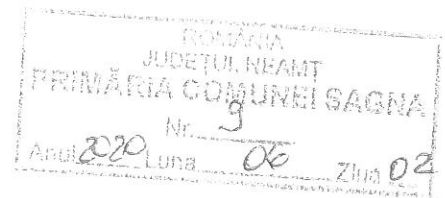 ROMÂNIA
JUDEȚUL NEAMȚ
PRIMĂRIA COMUNEI SAGNA
Nr. 9
Anul 2020 Luna 06 Ziua 02